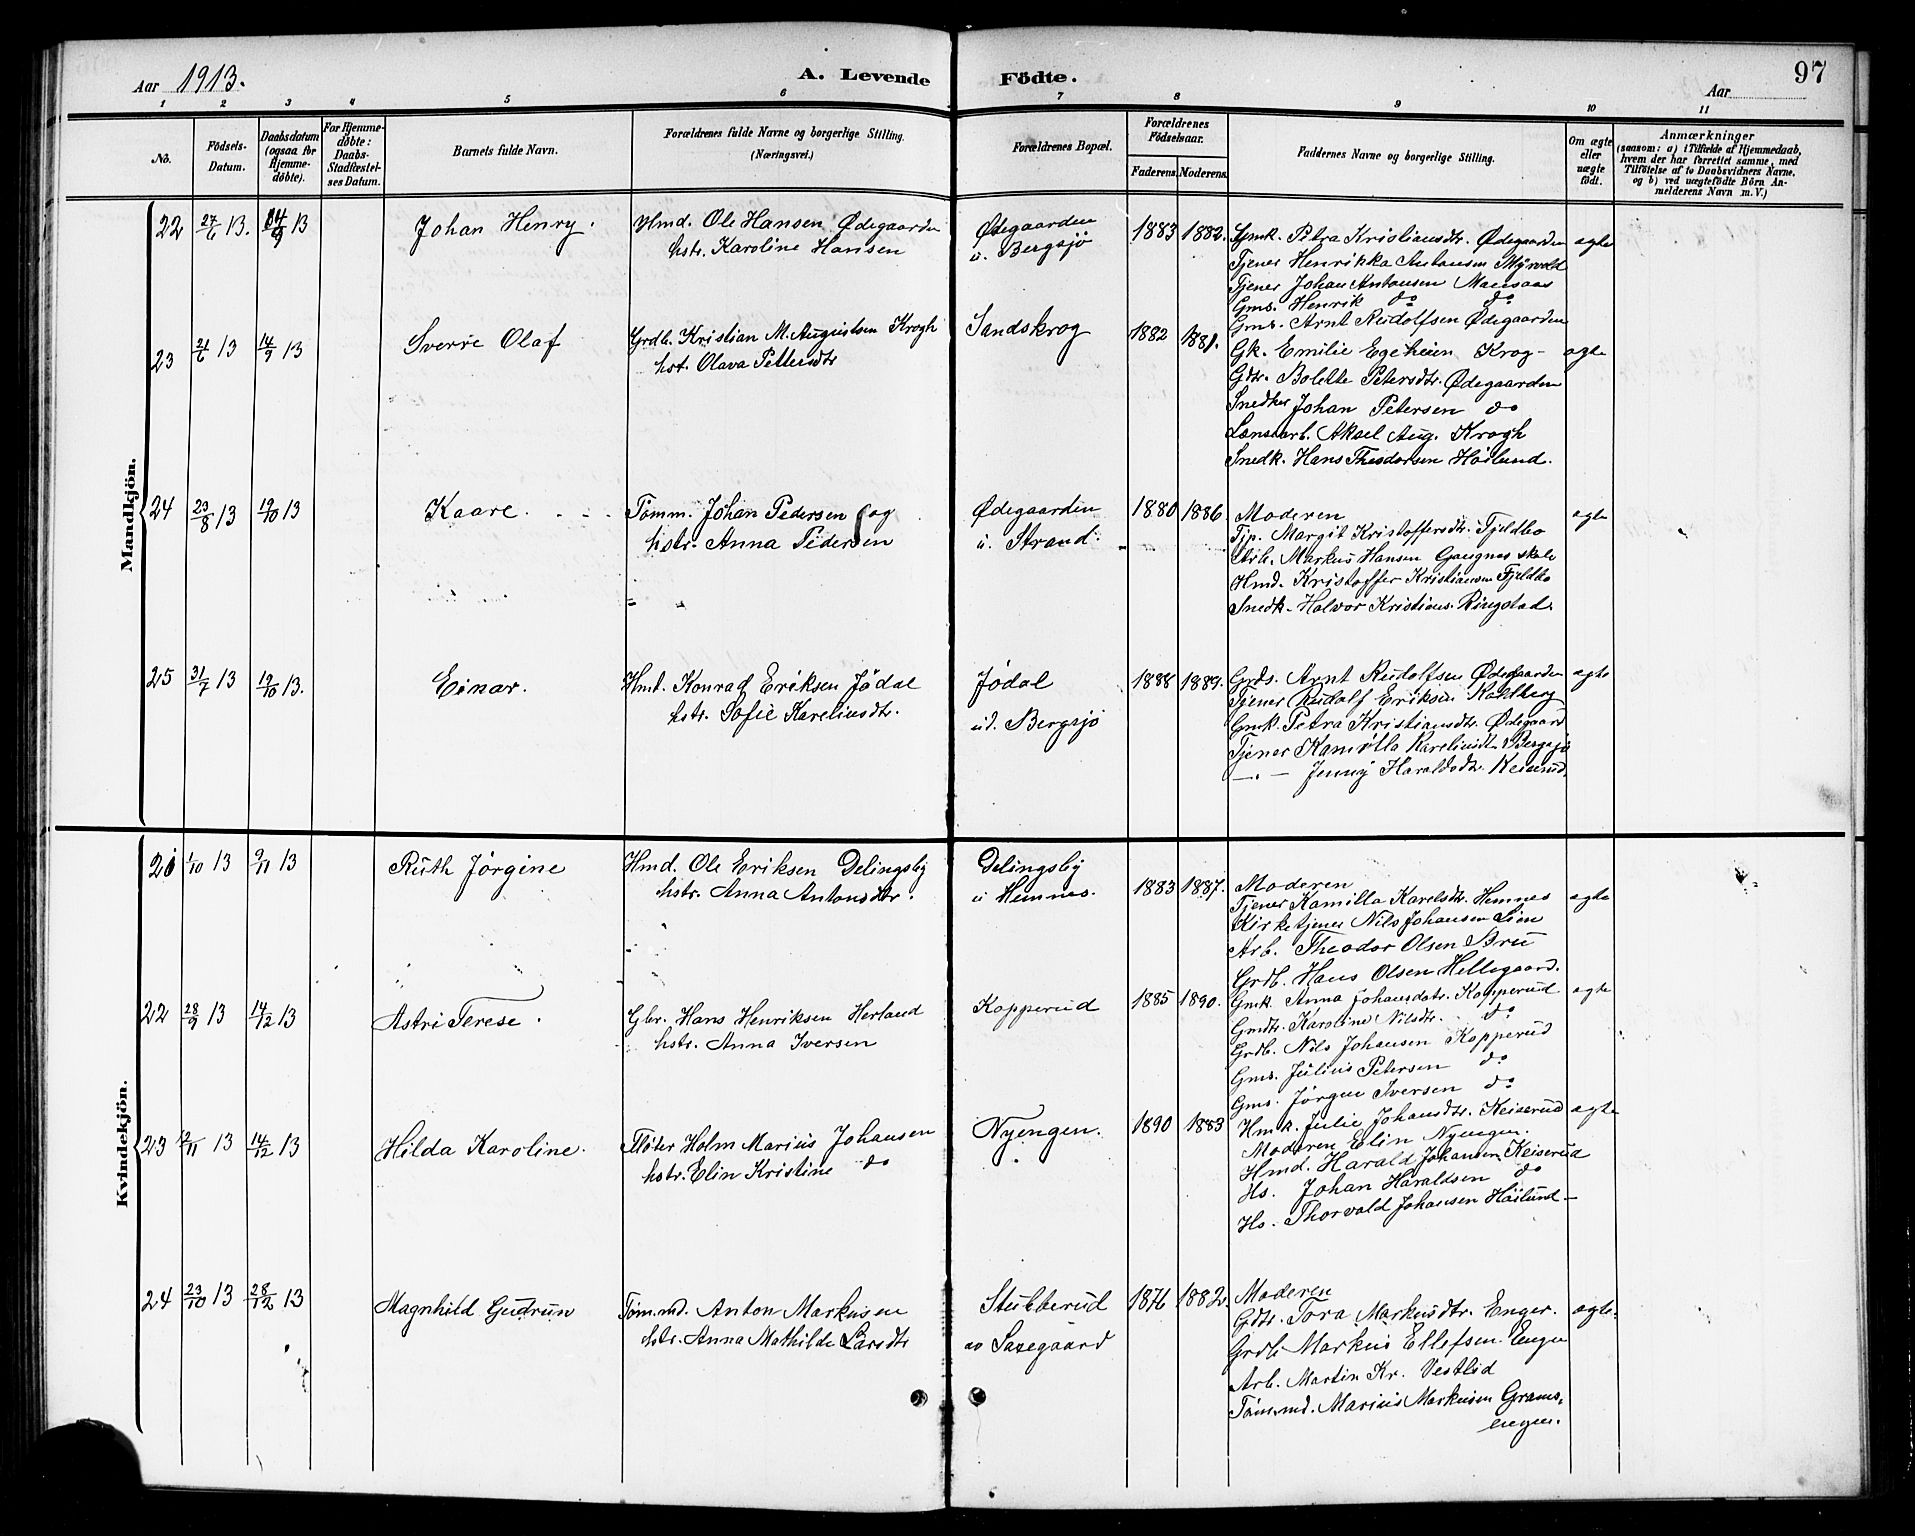 Aar 1913.
A. Levende Födte.
97
Aar
1 2 3 4 5 6 7 8 9 10 11
No.
Födsels-Datum.
Daabsdatum (ogsaa for Hjemme-döbte).
For Hjemme-döbte: Daabs-Stadfæstel-ses Datum.
Barnets fulde Navn.
Forældrenes fulde Navne og borgerlige Stilling. (Næringsvei.)
Forældrenes Bopæl.
Forældrenes Födselsaar.
Faderens. Moderens.
Faddernes Navne og borgerlige Stilling.
Om ægte eller uægte födt.
Anmærkninger
(saasom: a) i Tilfælde af Hjemmedaab,
hvem der har forrettet samme, med
Tilföielse af to Daabsvidners Navne,
og b) ved uægtefödte Börn An-
melderens Navn m. V.)
Mandkjön.
22 27/6 13. 14/9 13 Johan Henry. Hmd. Ole Hansen Ødegaarden
hstr. Karoline Hansen
Ødegaarden
u. Bergsjø
1883 1882.
Gmk. Petra Kristiansdtr. Ødegaarden ægte
Tjener Henrikka Antonsen Myrvold
Tjener Johan Antonsen Mansaas
Gms. Henrik do do
Gms. Arnt Rudolfsen Ødegaarden
23 21/6 13 14/9 13 Sverre Olaf Grdb. Kristian M. Augustsen Krogh
hst. Olava Pettersdtr
Sandskrog
1882 1881.
Gk. Emilie Egeheien Krog- ægte
Gdtr. Bolette Petersdtr. Ødegaarden
Snedker Johan Petersen do
Lænsearb. Aksel Aug. Krogh
Snedk. Hans Theodorsen Høilund.
24 23/8 13 19/10 13 Kaare. Tømm. Johan Pedersen og
hstr. Anna Pedersen
Ødegaarden
u. Strand.
1880 1886.
Moderen ægte
Tjp. Margit Kristoffersdtr. Fjeldbo
Arb. Markus Hansen Gangnes skole
Hmd. Kristoffer Kristiansen Fjeldbo
Snedk. Halvor Kristians. Ringstad.
25 31/7 13 19/10 13. Einar. Hmd. Konrad Eriksen Jødal
hstr. Sofie Kareliusdtr.
Jødal
ud. Bergsjø
1888 1889.
Grds. Arnt Rudolfsen Ødegaarden ægte
Tjener Rudolf Eriksen Kolberg
Gmk. Petra Kristiansdtr. Ødegaard
Tjener Kamilla Kareliusdtr. Bergsjø
—„— Jenny Haraldsdtr. Keiserud.
Kvindekjön.
21 1/10 13 9/11 13 Ruth Jørgine Hmd. Ole Eriksen Delingsby
hstr. Anna Antonsdtr.
Delingsby
u Hemnes.
1883 1887.
Moderen
Tjener Kamilla Karelsdtr. Hemnes ægte
Kirketjener Nils Johansen Lien
Arb. Theodor Olsen Bru
Grdb. Hans Olsen Hellegaard.
22 28/9 13 14/12 13 Astri Terese. Gbr. Hans Henriksen Herland
hstr. Anna Iversen
Kopperud
1885 1890.
Gmk. Anna Johansdatr. Kopperud ægte
Gmdtr. Karoline Nilsdtr. do
Grdb. Nils Johansen Kopperud
Gms. Julius Petersen do
Gms. Jørgen Iversen do
23 2/11 13 14/12 13 Hilda Karoline. Fløter Holm Marius Johansen
hstr. Elin Kristine do
Nyengen.
1890 1883
Hmk. Julie Johansdtr. Keiserud ægte
Moderen Elin Nyengen.
Hmd. Harald Johansen Keiserud
Hs. Johan Haraldsen do
Hs. Thorvald Johansen Høilund-
24 23/10 13 28/12 13 Magnhild Gudrun Tøm.md. Anton Markusen
hstr. Anna Mathilde Larsdtr
Stubberud
av Saxegaard
1876 1882.
Moderen
Gdtr. Tora Markusdtr. Enger. ægte.
Grdb Markus Ellefsen Enger
Arb. Martin Kr. Vestlid
Tøm.md. Marius Markusen Grams-
engen.